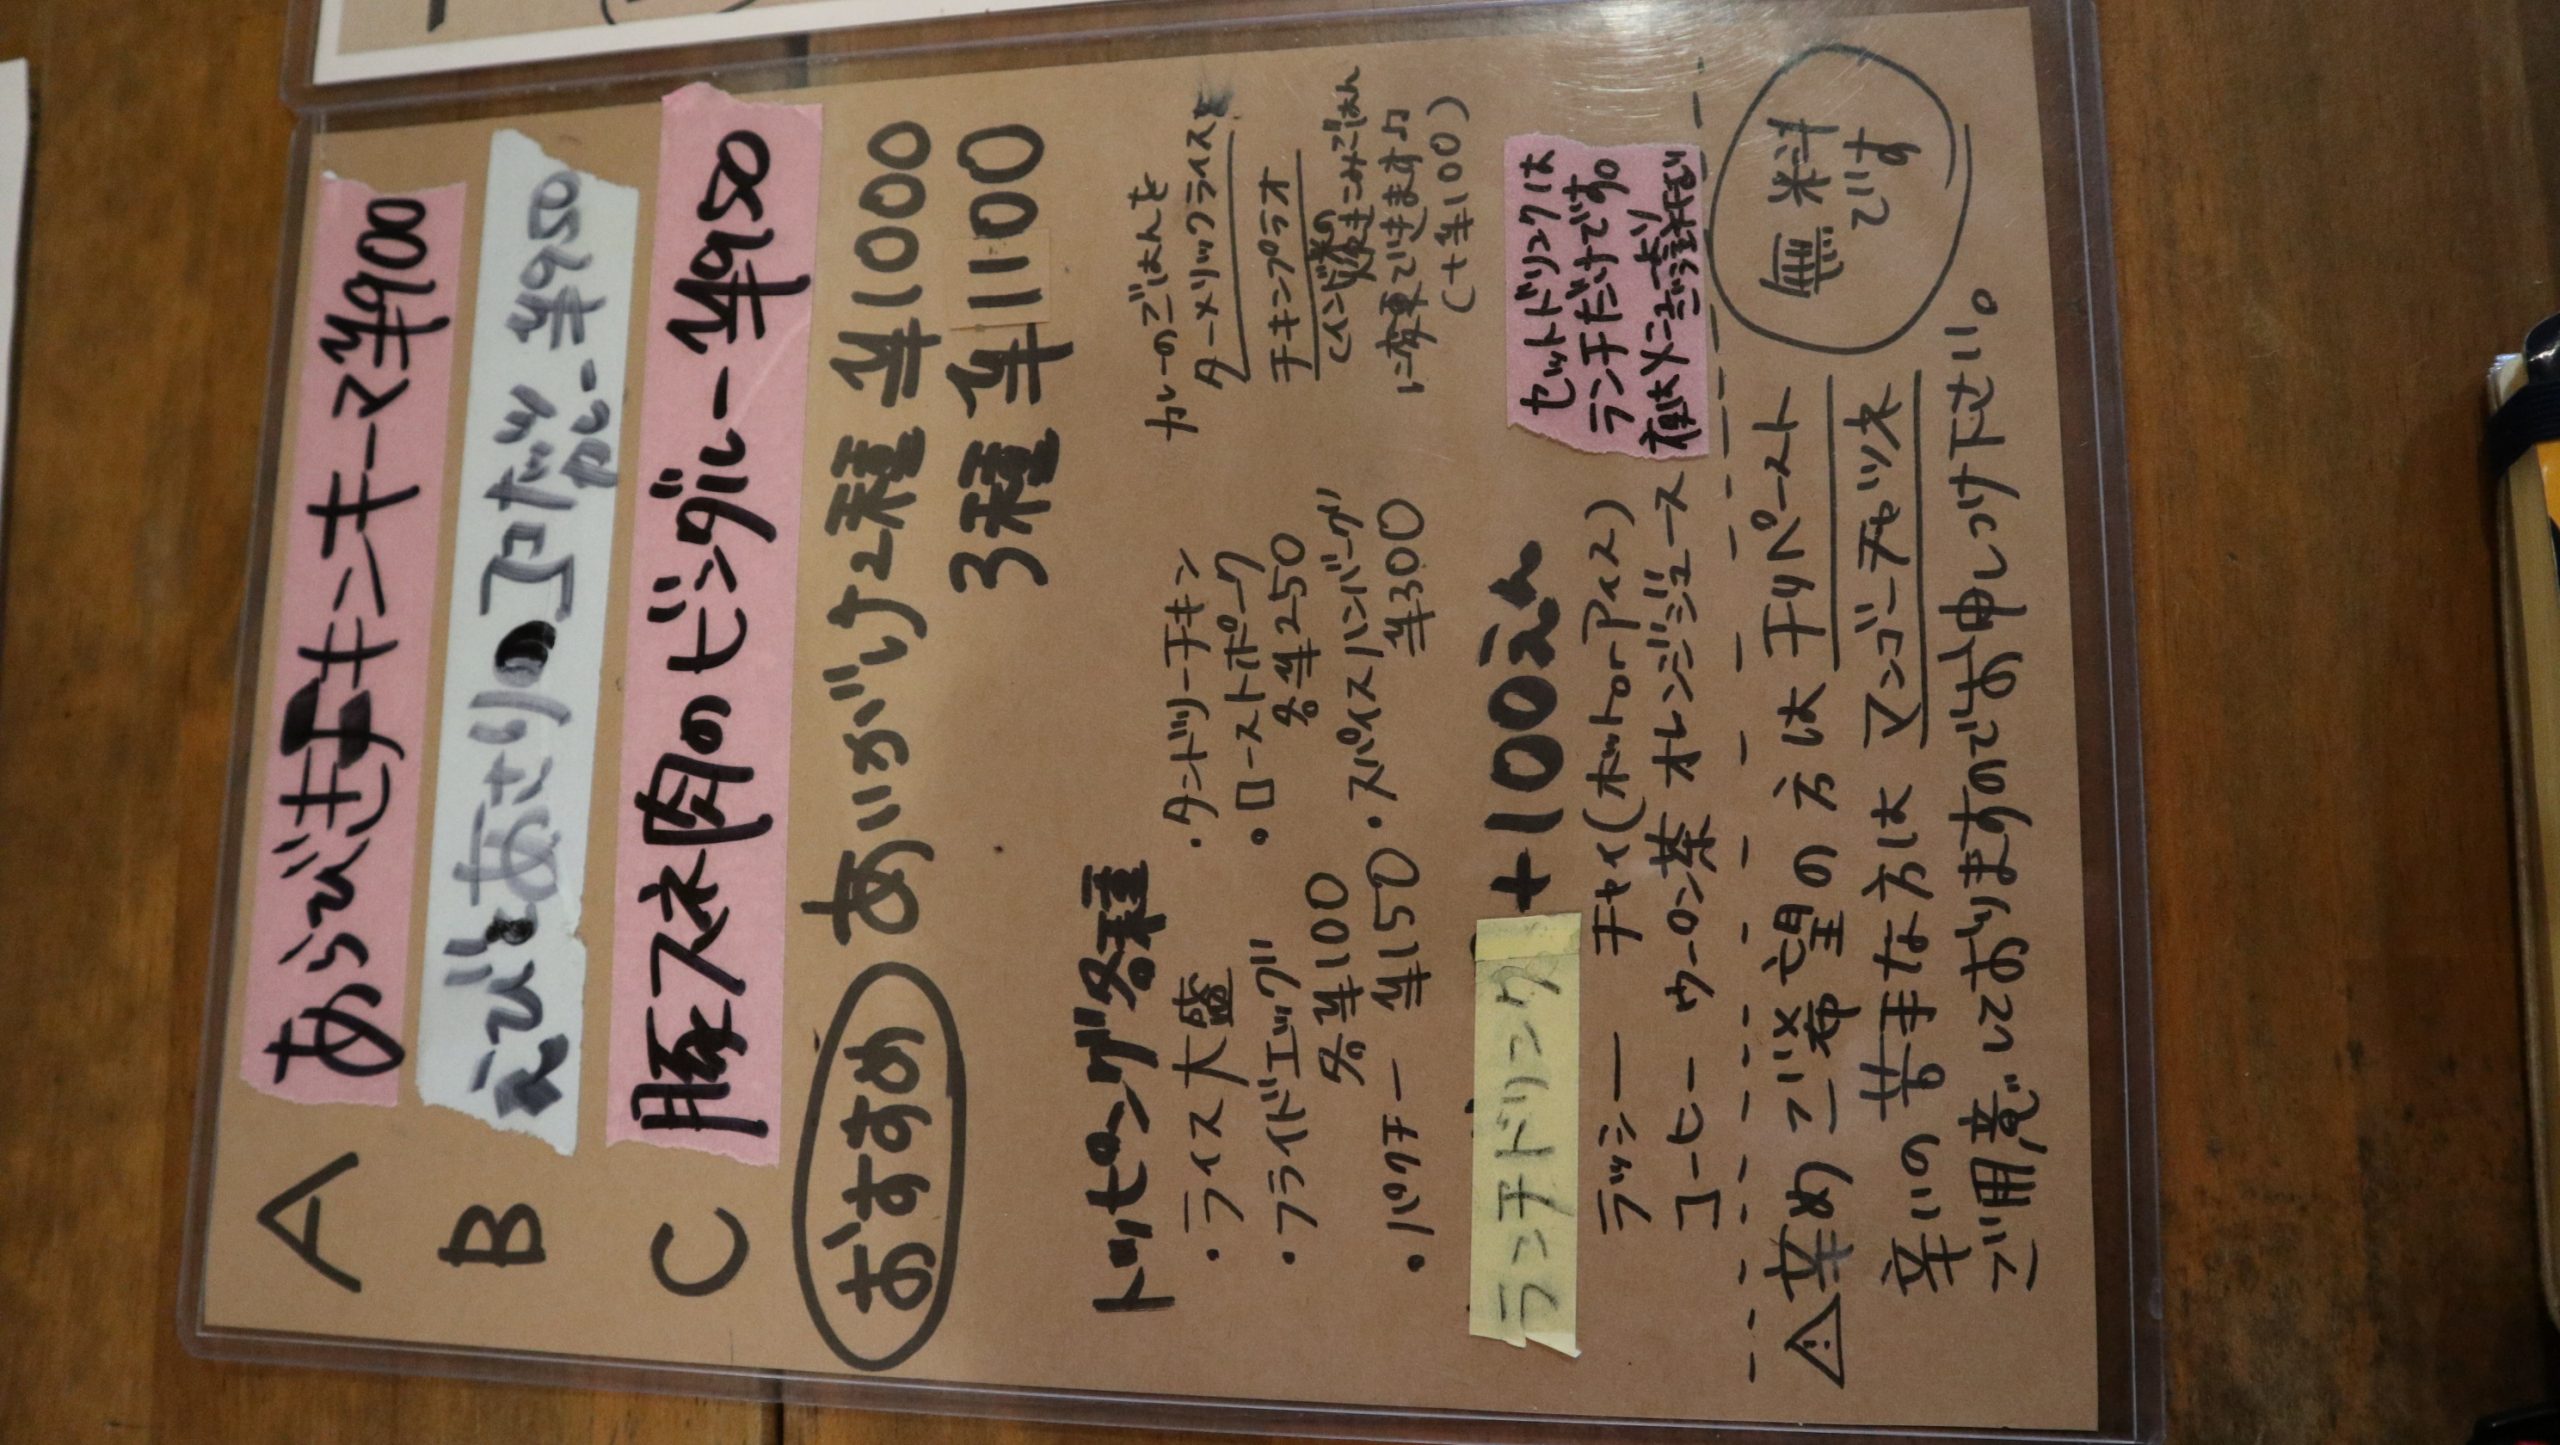 A あらびきチキンキーマ ¥900
B えびとあさりのココナッツカレー ¥950
C 豚スネ肉のビンダルー ¥950
おすすめ あいがけ 2種 ¥1000
3種 ¥1100
トッピング各種
・ライス大盛
・フライドエッグ
各¥100
・パクチー ¥150
・タンドリーチキン
・ローストポーク
各¥250
・スパイスハンバーグ
¥300
カレーのごはんを
ターメリックライス
チキンプラオ
(インド米の炊きこみごはん
に変更できます♪
(+¥100)
ランチドリンク +100えん
セットドリンクは
ランチだけです。
ラッシー チャイ(ホットorアイス)
コーヒー ウーロン茶 オレンジジュース
⚠辛めご希望の方はチリペースト
辛いの苦手な方はマンゴーチャツネ
ご用意してありますのでお申しつけ下さい。
無料
です